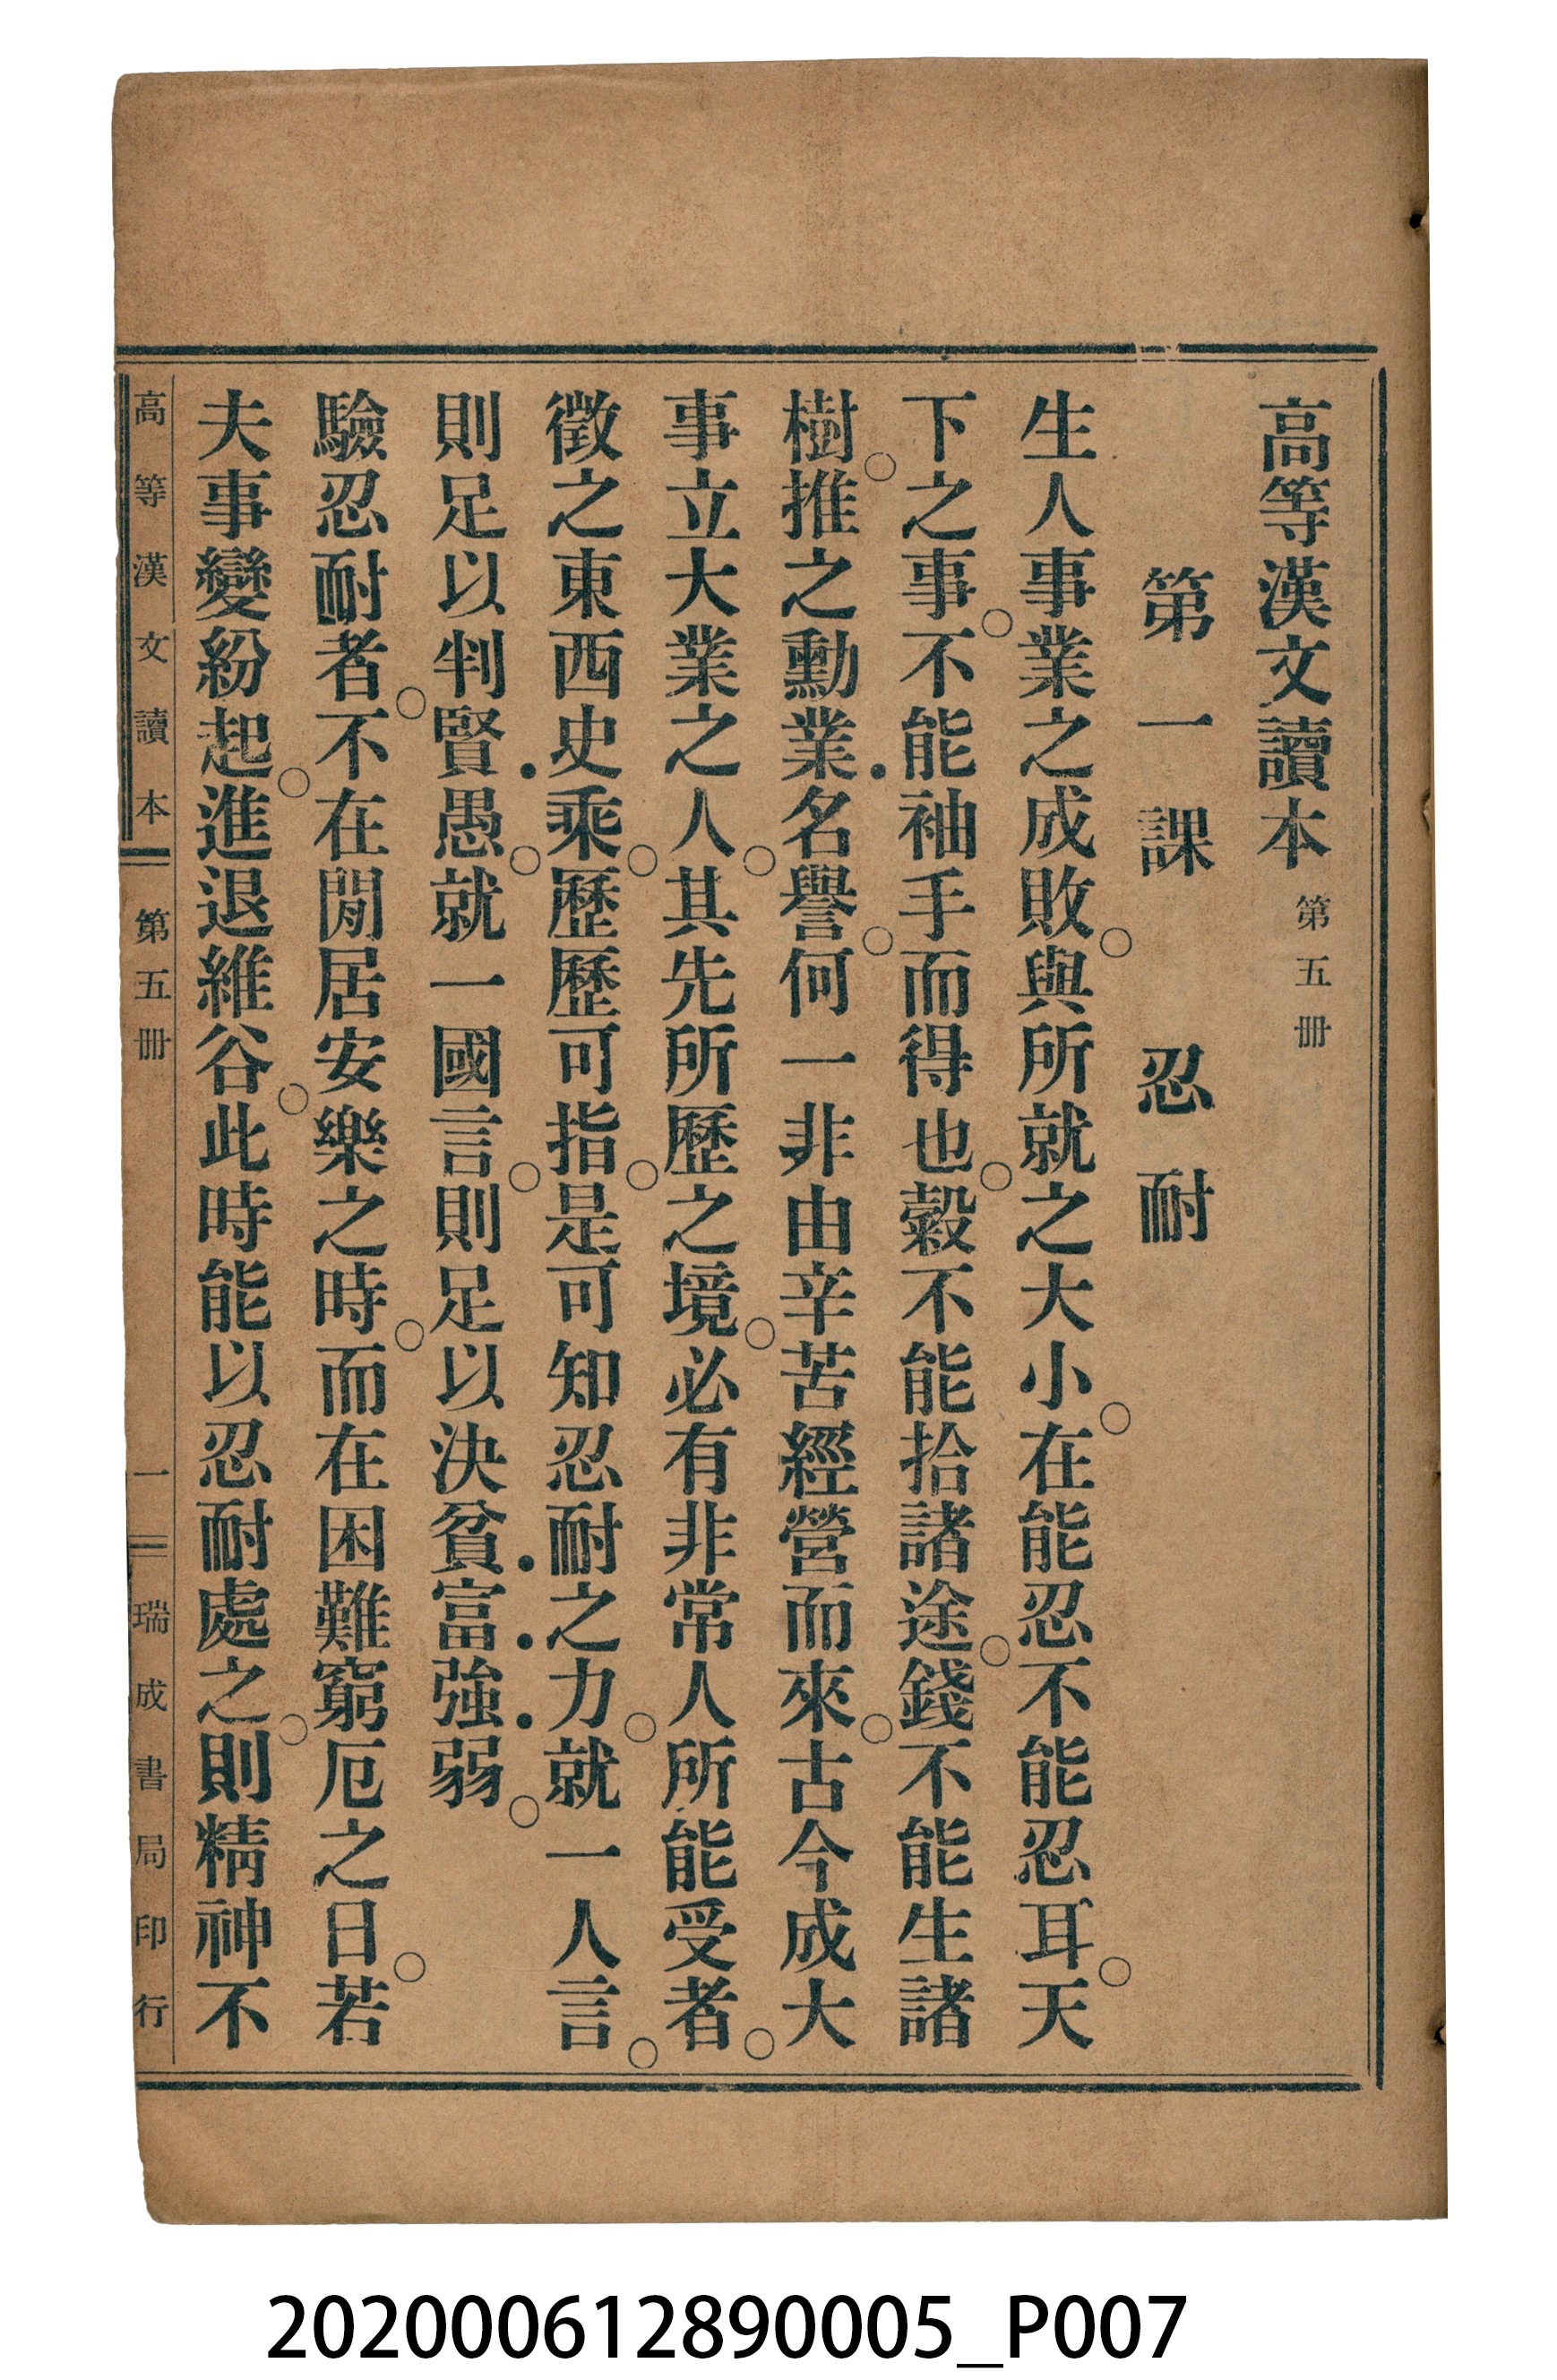 高等漢文讀本 第五冊
第一課 忍耐
生人事業之成敗。與所就之大小。在能忍不能忍耳。天
下之事。不能袖手而得也。穀不能拾諸途。錢不能生諸
樹。推之勳業・名譽。何一非由辛苦經營而來。古今成大
事立大業之人。其先所歷之境。必有非常人所能受者。
徵之東西史乘。歷歷可指。是可知忍耐之力。就一人言。
則足以判賢・愚。就一國言。則足以決貧・富・強・弱。
驗忍耐者。不在閒居安樂之時。而在困難窮厄之日。若
夫事變紛起。進退維谷。此時能以忍耐處之。則精神不
高等漢文讀本 第五冊 一 瑞成書局印行
202000612890005_P007